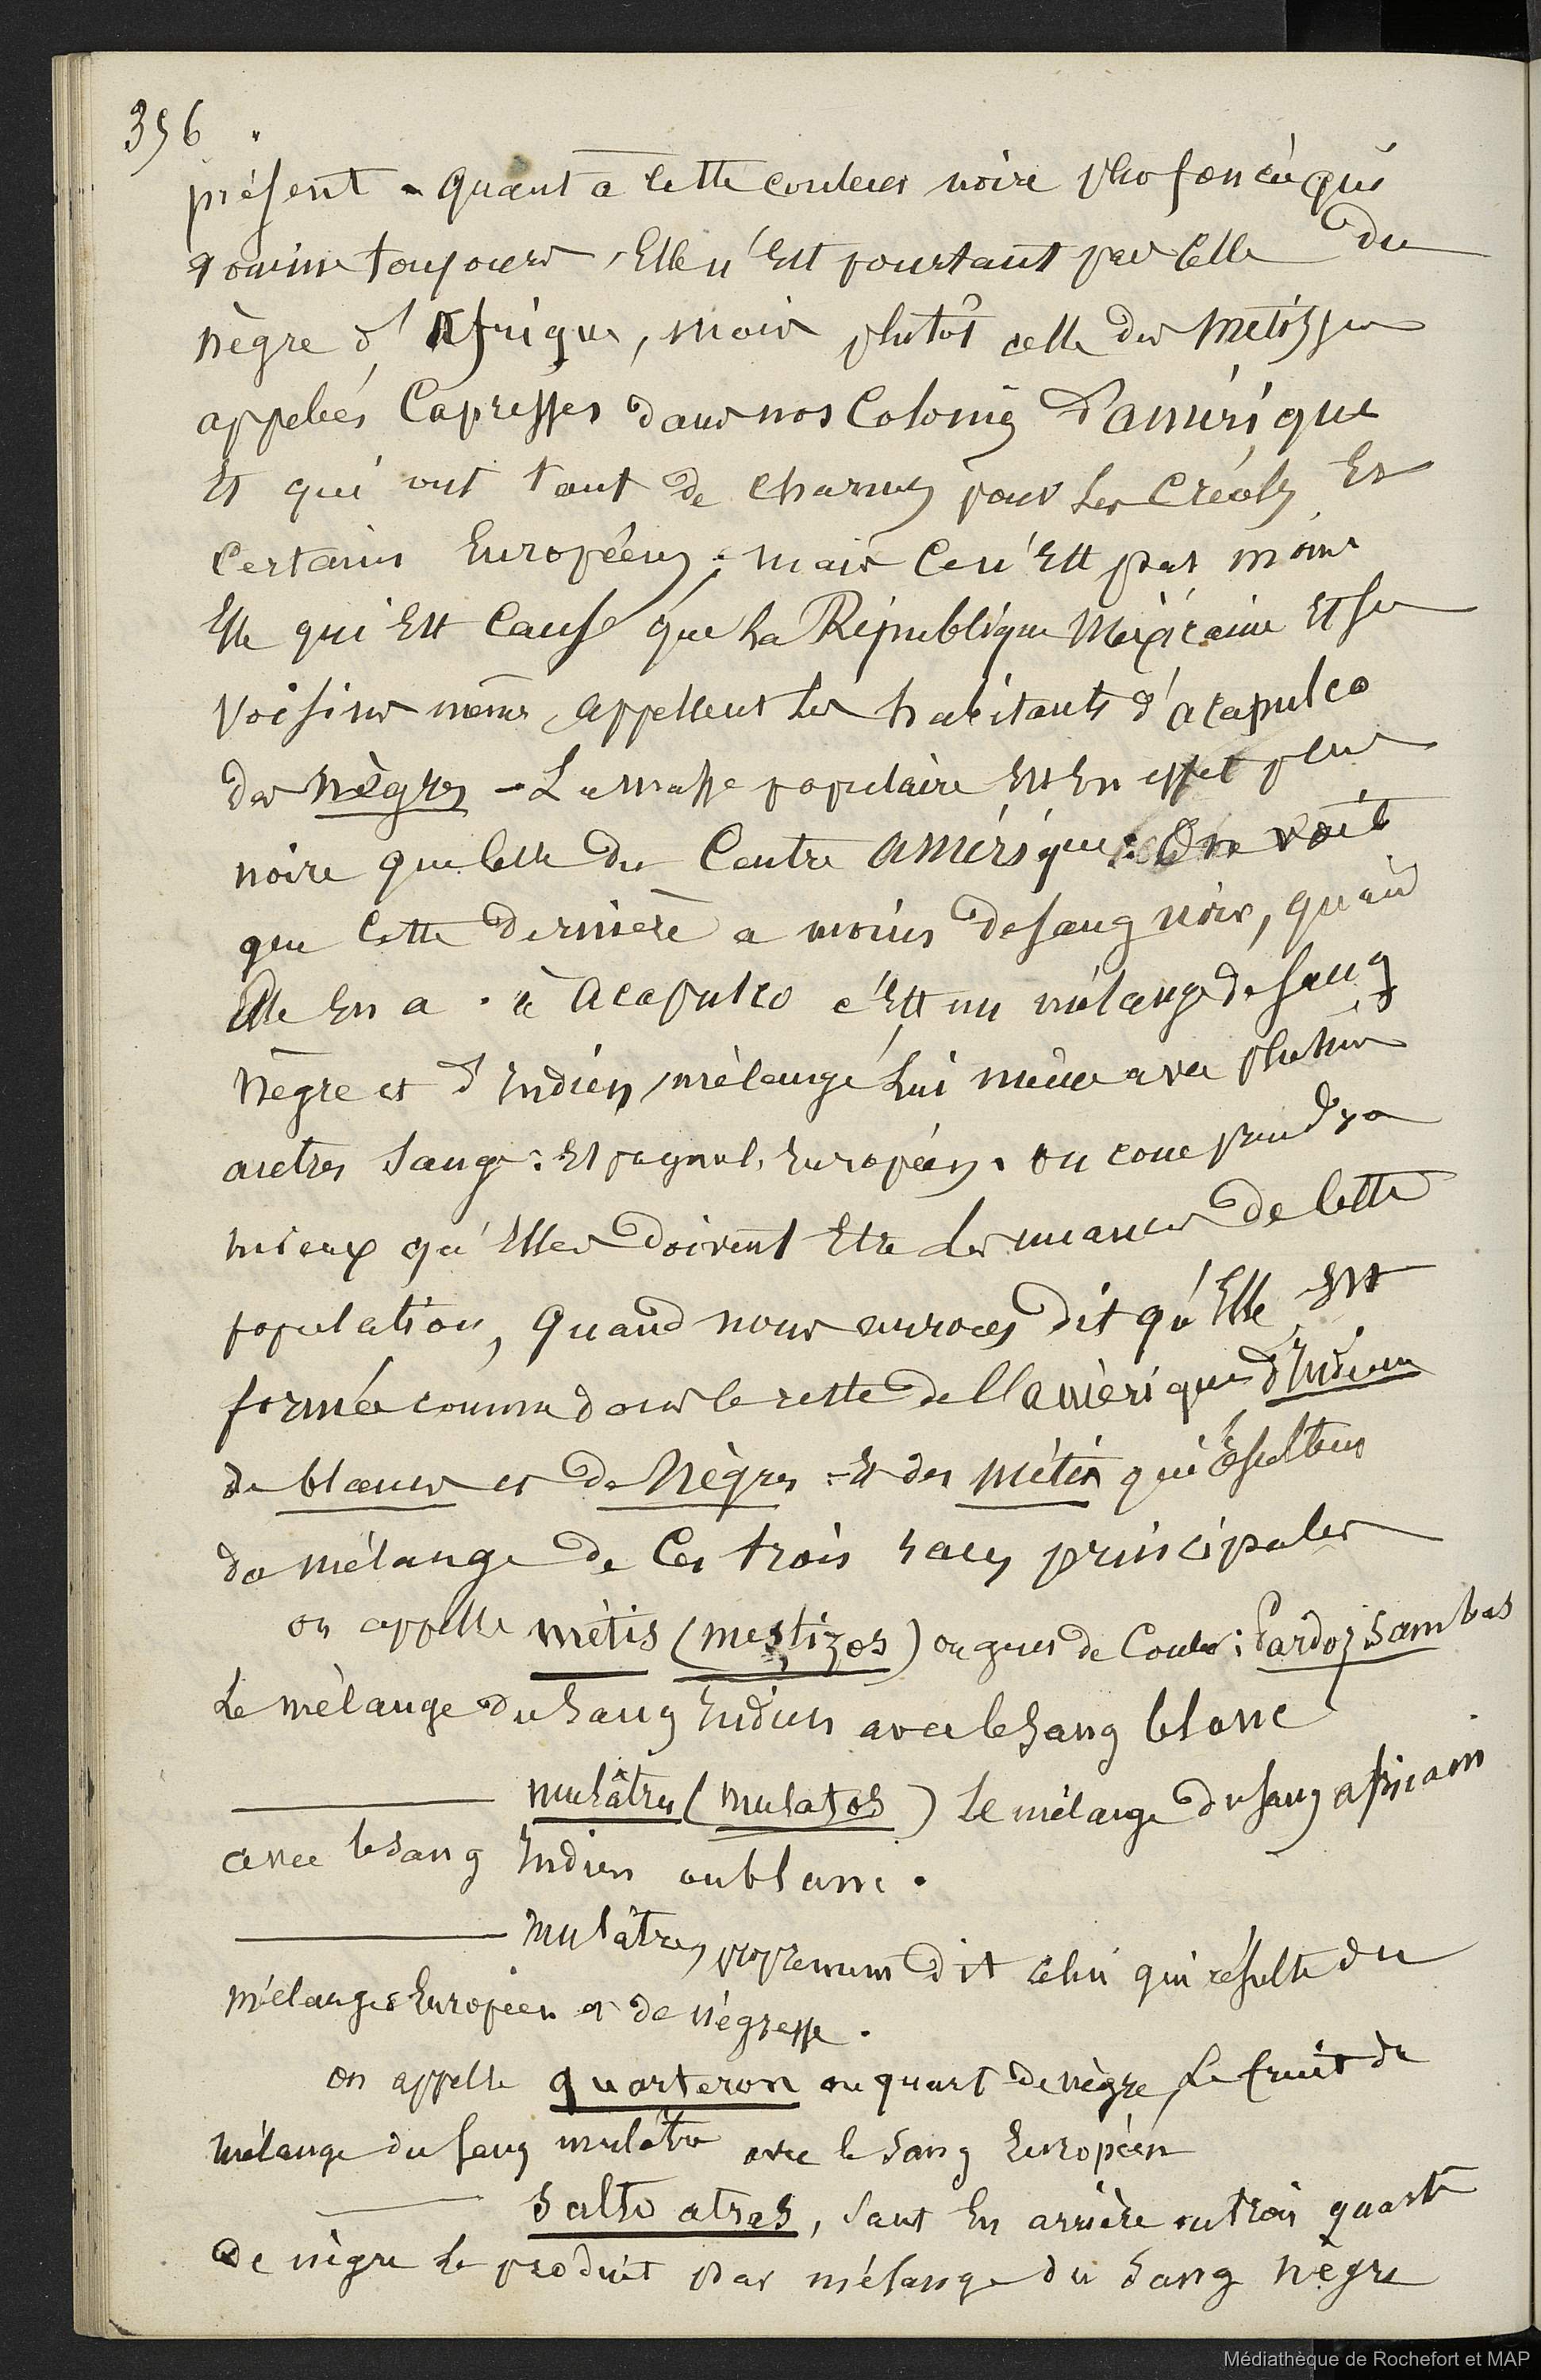 396
présent - quant à cette couleur noire plus foncée qui
domine toujours, Elle n'Est pourtant pas celle du
nègre d'Afrique, mais plutôt celle des Métisses
appelées Capresses dans nos Colonies d'amérique
Et qui ont tant de charmes pour les Créoles Et
Certains Européens ; mais ce n'Est pas moins
Elle qui Est cause que la République Mexicaine Et ses
voisins mêmes, appellent les habitants d'acapulco
des nègres - La masse populaire Est En effet plus
noire que celle du Centre amérique : On voit
que cette dernière a moins de sang noir, quand
Elle En a . à Acapulco c'Est un mélange de sang
nègre et d'Indien, mélangé lui même avec plusieurs
autres sangs : Espagnol, Européen . on comprendra
mieux qu'Elles doivent Etre les nuances de cette
population, quand nous aurons dit qu'Elle Est
formée comme dans le reste de l'amérique d'Indiens
de blancs et de Nègres Et des métis qui résultent
du mélange de ces trois races principales
on appelle métis (mestizos) ou gens de Couleur : Pardos Sambas
Le mélange du sang Indien avec le sang blanc
mulâtres (mulatos) Le mélange du sang africain
avec le sang Indien ou blanc .
mulâtres, proprement dit celui qui résulte du
mélange Européen et de négresse .
on appelle quarteron ou quart de nègre, Le fruit du
mélange du sang mulâtre avec le sang Européen
Salto atras, saut En arrière ou trois quarts
de nègre Le produit par mélange du sang nègre
Médiathèque de Rochefort et MAP